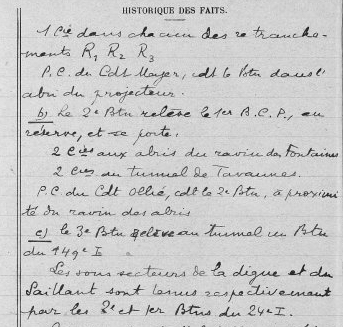 HISTORIQUE DES FAITS.
1 Cie dans chacun des retranche-
ments R1 R2 R3
P.C. du Cdt Moyer, cdt le Btn dans l'
abri du projecteur.
b) Le 2e Btn relève le 1er B.C.P., en
réserve, et se porte.
2 Cies aux abris du ravin des Fontaines
2 Cies au tunnel de Tavannes.
P.C du Cdt Ollié, cdt le 2e Btn, à proximi
té du ravin des abris
c) le 3e Btn relève au tunnel un Btn
du 149e I
Les sous secteurs de la digue et du
Saillant sont tenus respectivement
par les 3e et 1er Btns du 24e I.